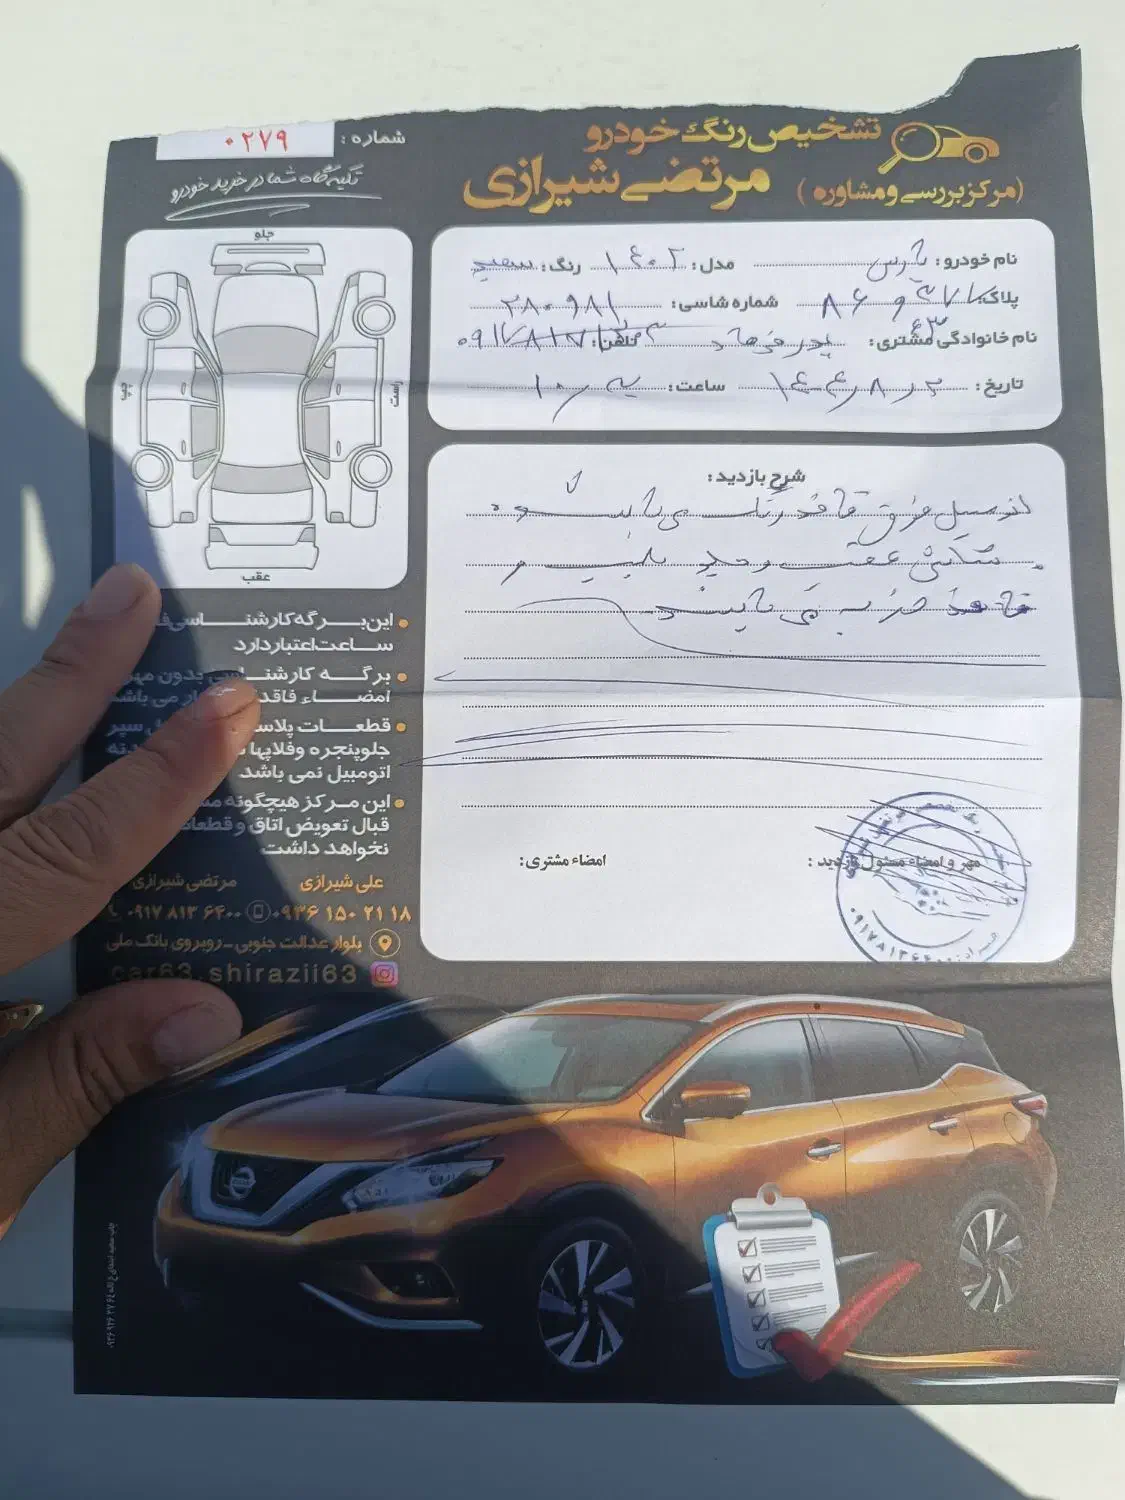 تشخیص رنگ خودرو
مرتضی شیرازی
(مرکز بررسی و مشاوره)
شماره : ۰۲۷۹
تکیه گاه شما در خرید خودرو
جلو
چپ
راست
عقب
نام خودرو: پارس مدل: ۱۴۰۲ رنگ: سفید
پلاک: شماره شاسی: ۲۸۰۹۸۱
نام خانوادگی مشتری: تلفن:
تاریخ: ساعت:
شرح بازدید:
اتومبیل فوق فاقد رنگ می باشد
فاقد ضربه می باشد
مهر و امضاء مسئول بازدید :
امضاء مشتری:
این برگه کارشناسی
ساعت اعتبار دارد
برگه کارشناسی بدون مهر
امضاء فاقد می باشد
قطعات سپر
جلوپنجره و فلاپها
اتومبیل نمی باشد
این مرکز هیچگونه
قبال تعویض اتاق و قطعات
نخواهد داشت
علی شیرازی
مرتضی شیرازی
۰۹۳۶ ۱۵۰ ۲۱ ۱۸
۰۹۱۷ ۸۱۳ ۶۴۰۰
بلوار عدالت جنوبی - روبروی بانک ملی
car63.shirazii63